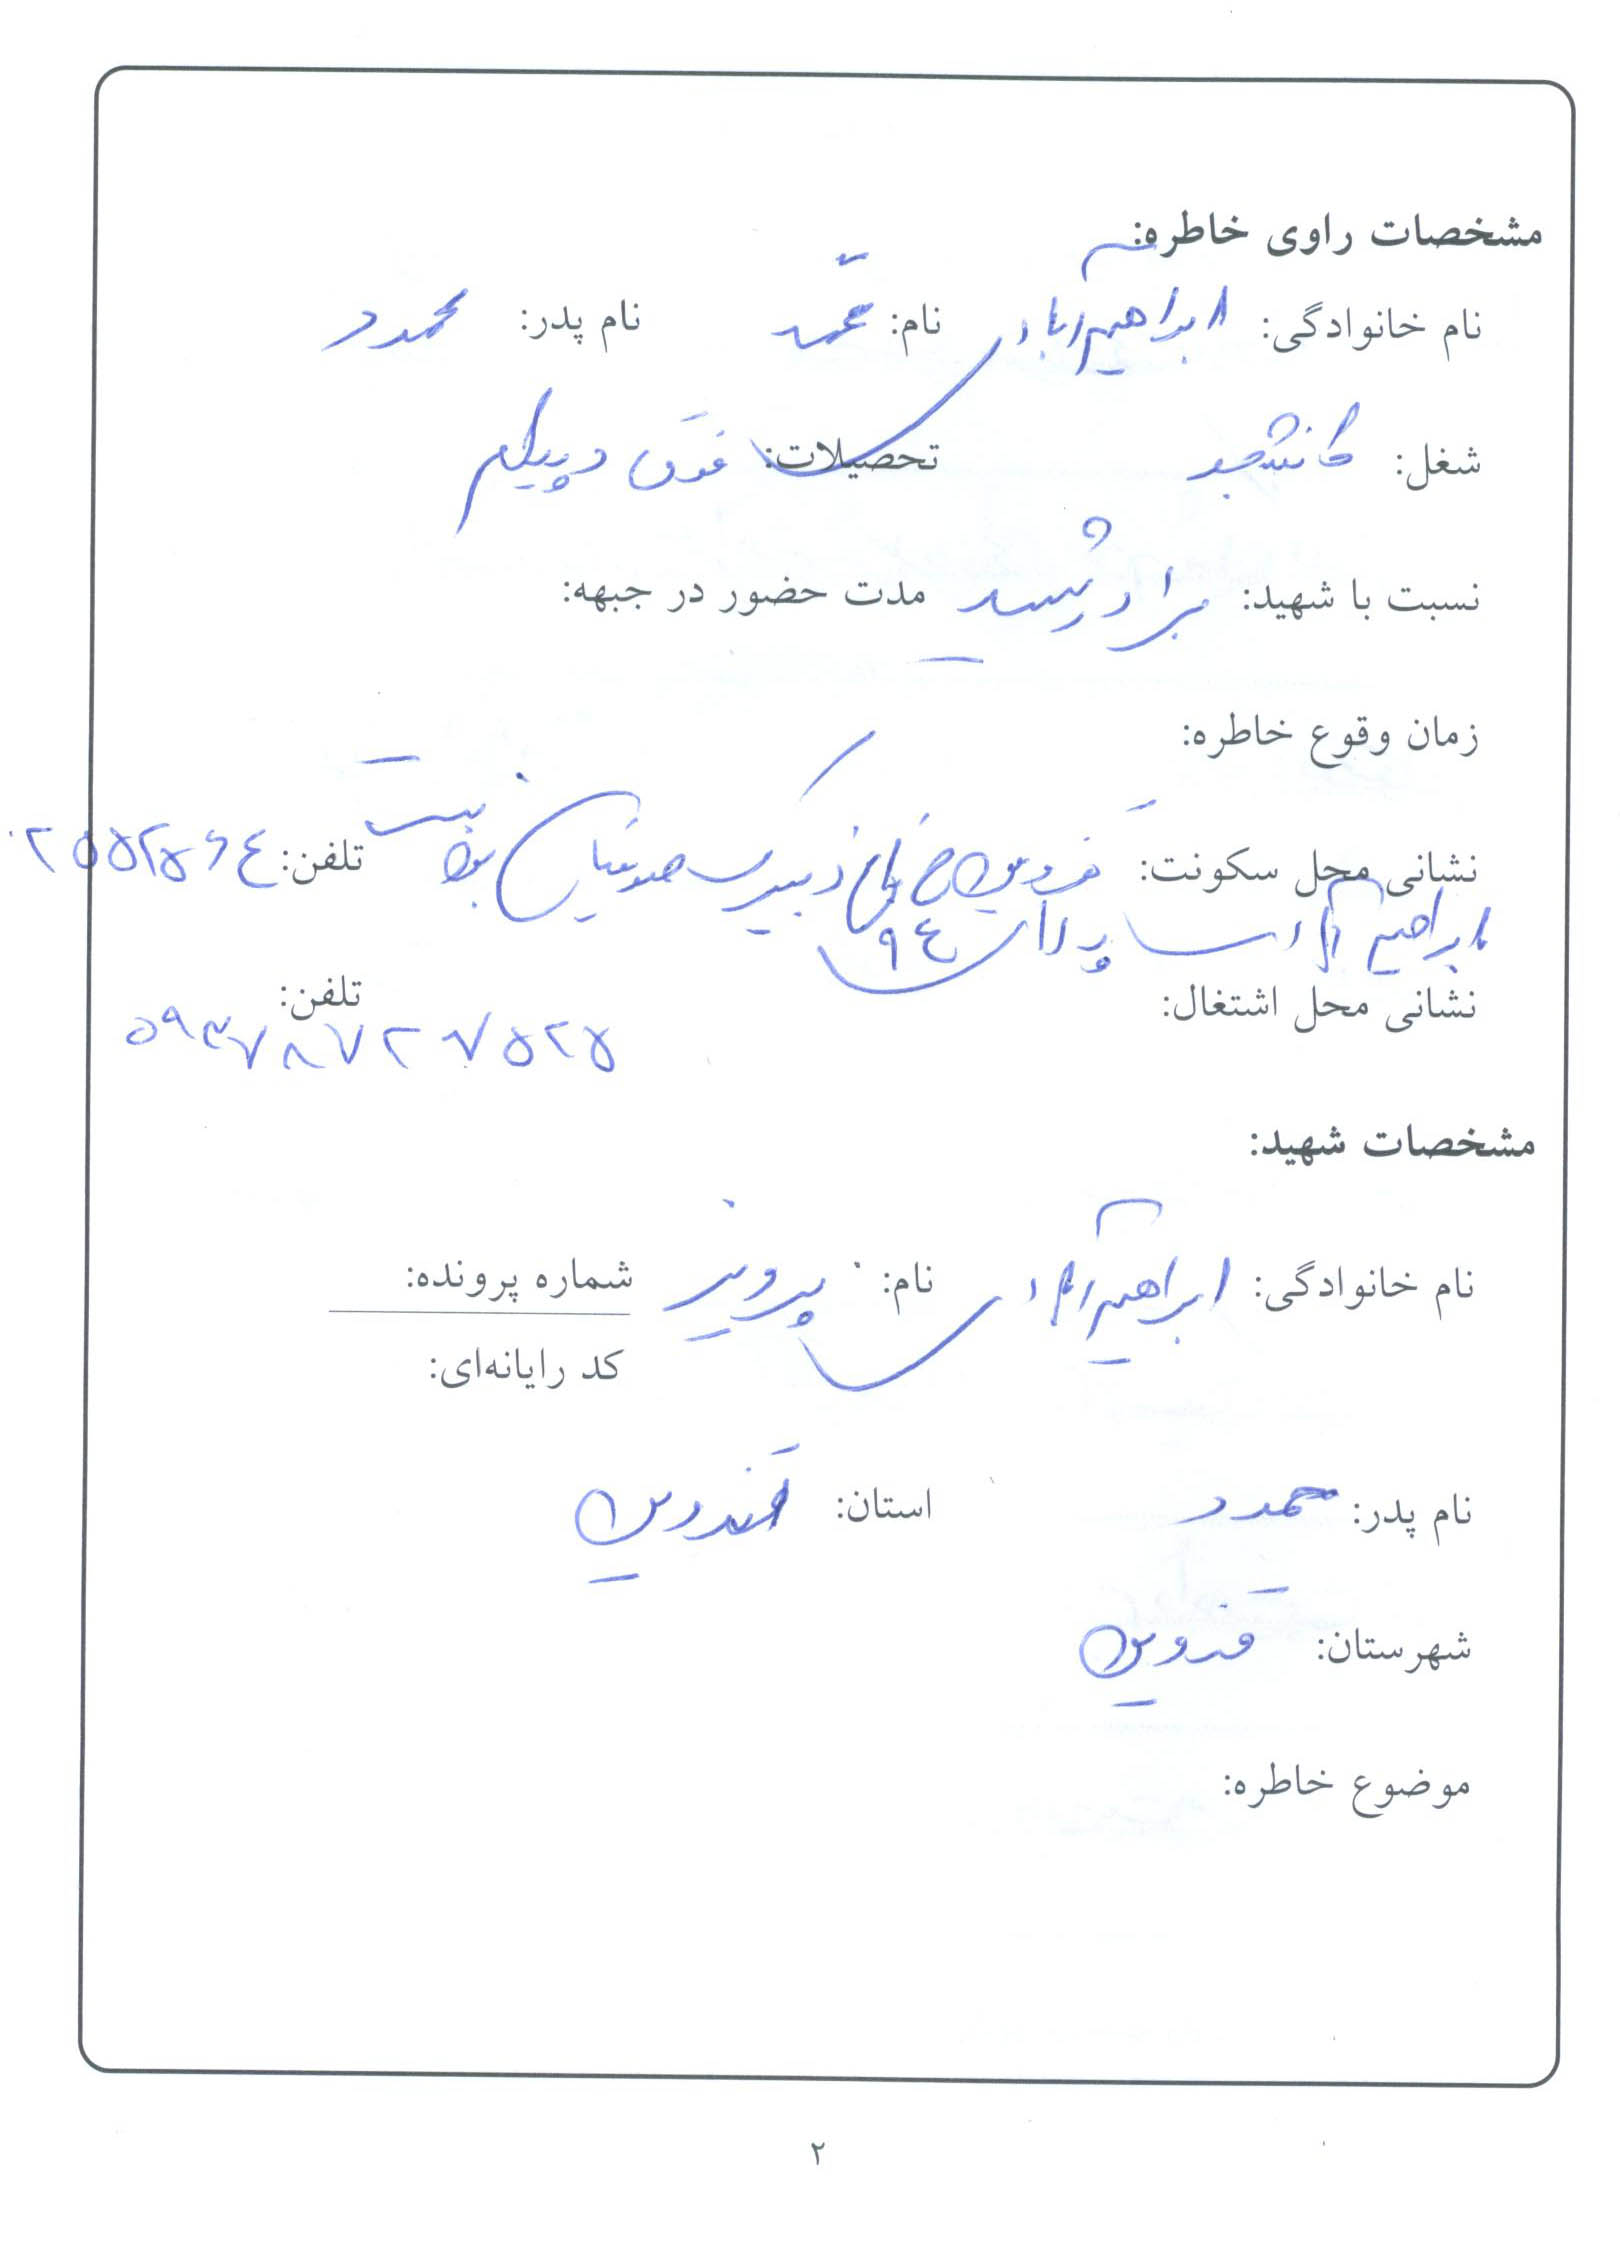 مشخصات راوی خاطره:
نام خانوادگی: ابراهیم آبادی نام: محمد نام پدر: محمود
شغل: تحصیلات: فوق دیپلم
نسبت با شهید: برادر شهید مدت حضور در جبهه:
زمان وقوع خاطره:
نشانی محل سکونت: قزوین خ بن بست تلفن:
ابراهیم آبادی پلاک ۹۴
نشانی محل اشتغال: تلفن:
مشخصات شهید:
نام خانوادگی: ابراهیم آبادی نام: پرویز شماره پرونده:
کد رایانه‌ای:
نام پدر: محمود استان: قزوین
شهرستان: قزوین
موضوع خاطره:
۲